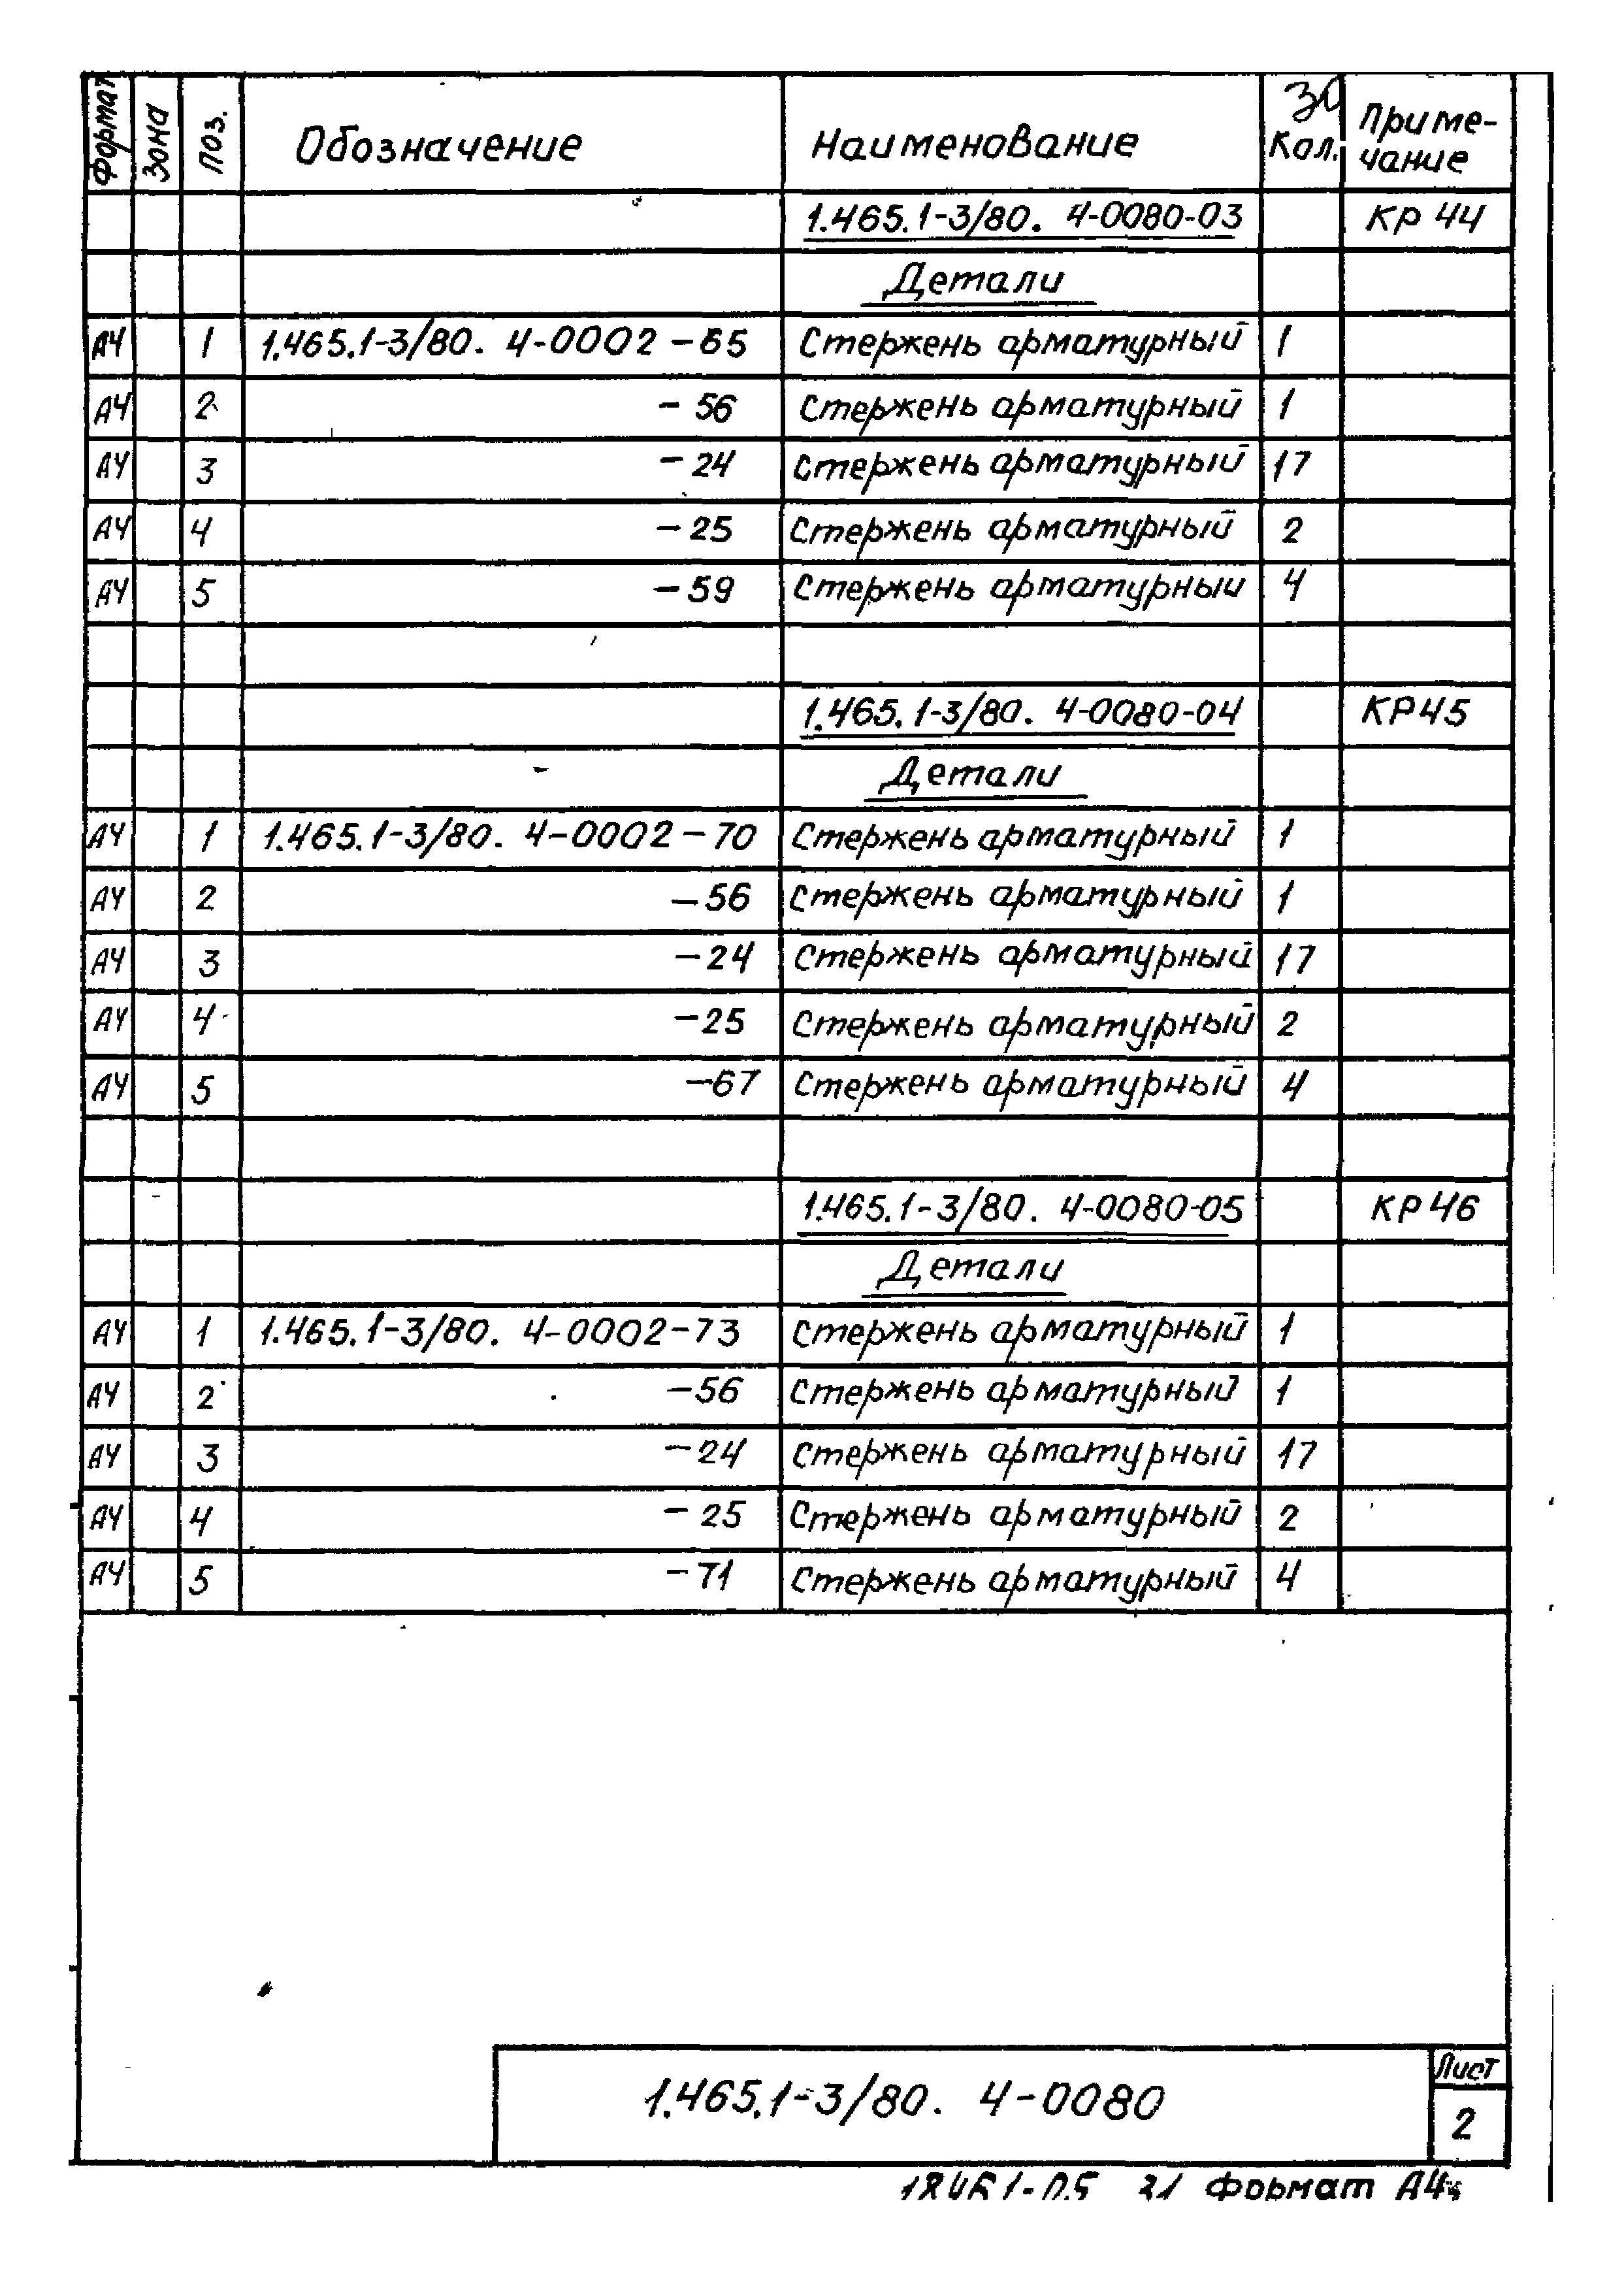 Формат Зона Поз. Обозначение Наименование Кол. Приме-
чание
1.465.1-3/80. 4-0080-03 КР 44
Детали
А4 1 1.465.1-3/80. 4-0002-65 Стержень арматурный 1
А4 2 -56 Стержень арматурный 1
А4 3 -24 Стержень арматурный 17
А4 4 -25 Стержень арматурный 2
А4 5 -59 Стержень арматурный 4
1.465.1-3/80. 4-0080-04 КР45
Детали
А4 1 1.465.1-3/80. 4-0002-70 Стержень арматурный 1
А4 2 -56 Стержень арматурный 1
А4 3 -24 Стержень арматурный 17
А4 4 -25 Стержень арматурный 2
А4 5 -67 Стержень арматурный 4
1.465.1-3/80. 4-0080-05 КР46
Детали
А4 1 1.465.1-3/80. 4-0002-73 Стержень арматурный 1
А4 2 -56 Стержень арматурный 1
А4 3 -24 Стержень арматурный 17
А4 4 -25 Стержень арматурный 2
А4 5 -71 Стержень арматурный 4
1.465.1-3/80. 4-0080
Лист
2
Формат А4